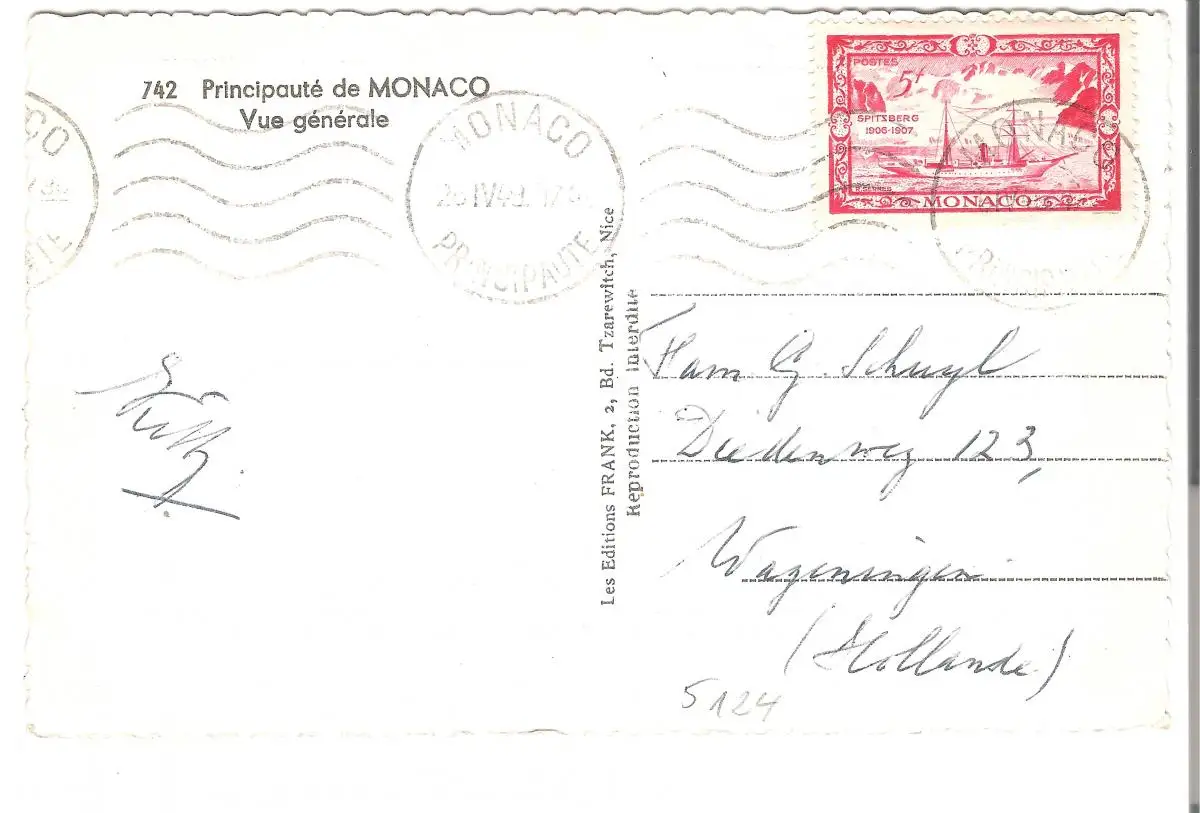 742 Principauté de MONACO
Vue générale
MONACO
PRINCIPAUTE
POSTES
5f
SPITSBERG
1906-1907
MONACO
Les Editions FRANK, 2, Bd. Tzarewitch, Nice
Reproduction interdite
Fam. G. Schuyl
Diedenweg 123,
Wageningen
(Hollande)
5124